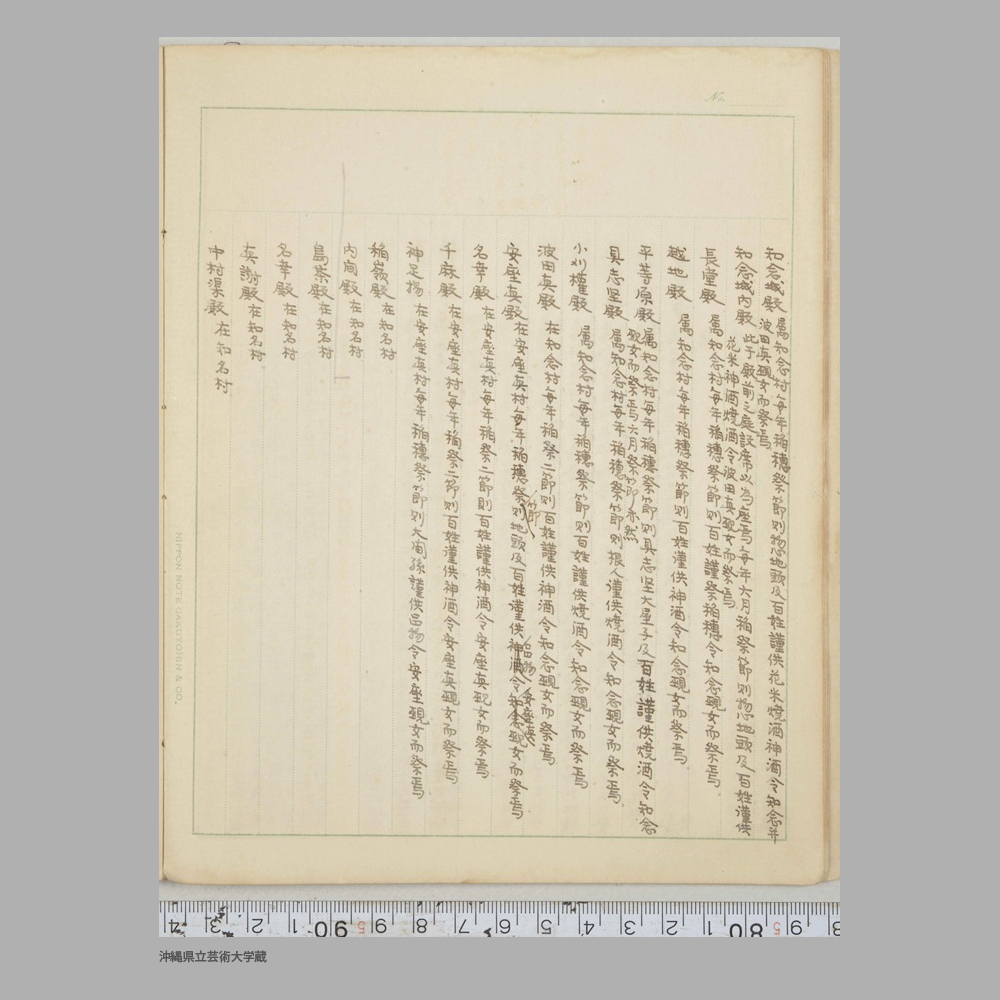 No.
知念城殿 属知念村毎年稲穂祭節則惣地頭及百姓謹供花米焼酒神酒令知念并
波田真覡女而祭焉
知念城内殿 此于殿前之庭設席以為座焉毎年六月稲祭節則惣地頭及百姓謹供
花米神酒焼酒令波田真覡女而祭焉
長堂殿 属知念村毎年稲穂祭節則百姓謹祭稲穂令知念覡女而祭焉
越地殿 属知念村毎年稲穂祭節則百姓謹供神酒令知念覡女而祭焉
平等原殿 属知念村毎年稲穂祭節則具志堅大屋子及百姓謹供焼酒令知念
覡女而祭焉六月祭節亦然
具志堅殿 属知念村毎年稲穂祭節則根人謹供焼酒令知念覡女而祭焉
小刈権殿 属知念村毎年稲穂祭節則百姓謹供焼酒令知念覡女而祭焉
波田真殿 在知念村毎年稲祭二節則百姓謹供神酒令知念覡女而祭焉
安座真殿 在安座真村毎年稲穂祭節則地頭及百姓謹供品物令安座真覡女而祭焉
名幸殿 在安座真村毎年稲祭二節則百姓謹供神酒令安座真覡女而祭焉
千麻殿 在安座真村毎年稲祭二節則百姓謹供神酒令安座真覡女而祭焉
神足揚 在安座真村毎年稲穂祭節則大閤孫謹供品物令安座覡女而祭焉
稲嶺殿 在知名村
内間殿 在知名村
島袋殿 在知名村
名幸殿 在知名村
真謝殿 在知名村
中村渠殿 在知名村
NIPPON NOTE GAKUYOHIN & CO.
沖縄県立芸術大学蔵